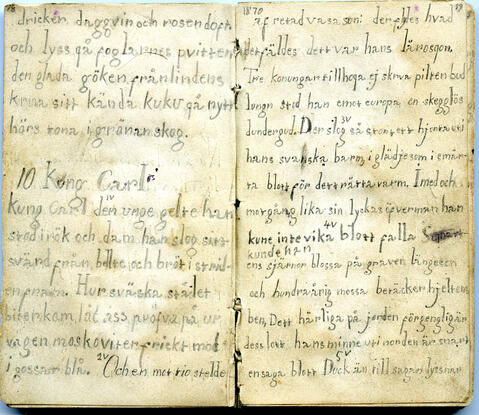 78
dricker daggvin och rosendoft
och lyss på foglarnes qvitter
den glada göken från lindens
krona sitt kända kuku på nytt
hörs tona i grönan skog.
10 Kung Carl
kung Carl den 1V unge gelte han
stod i rök och dam. han slog sitt
svärd från bälte och bröt i strid
en fram. Hur sväska stålet
biter kom låt ass profva på ur
vägen moskoviter friskt mod
i gossar blå. 2V Och en mot tio stelde
1870
79
af retad vasason: der flydes hvad
det fäldes dett var hans lärospon.
Tre konungar tillhopa ej skrva pilten bud
lungn stod han emot europa en skegglös
dundergud. 3V Der slog så stort ett hjerta uti
hans svänska barm, i glädje som i
ta blott för det rätta varm. I med och
morgång lika sin lyckas öfverman han
kune inte vika 4V blott falla
kunde han
ens sjärnor blossa på graven länge en
och hundraårig mossa betäcker hjeltens
ben, Dett härliga på jorden förgenglig är
dess lott. hans minne uti norden är snart
en saga blott 5V Dock än till sagan lyssnar